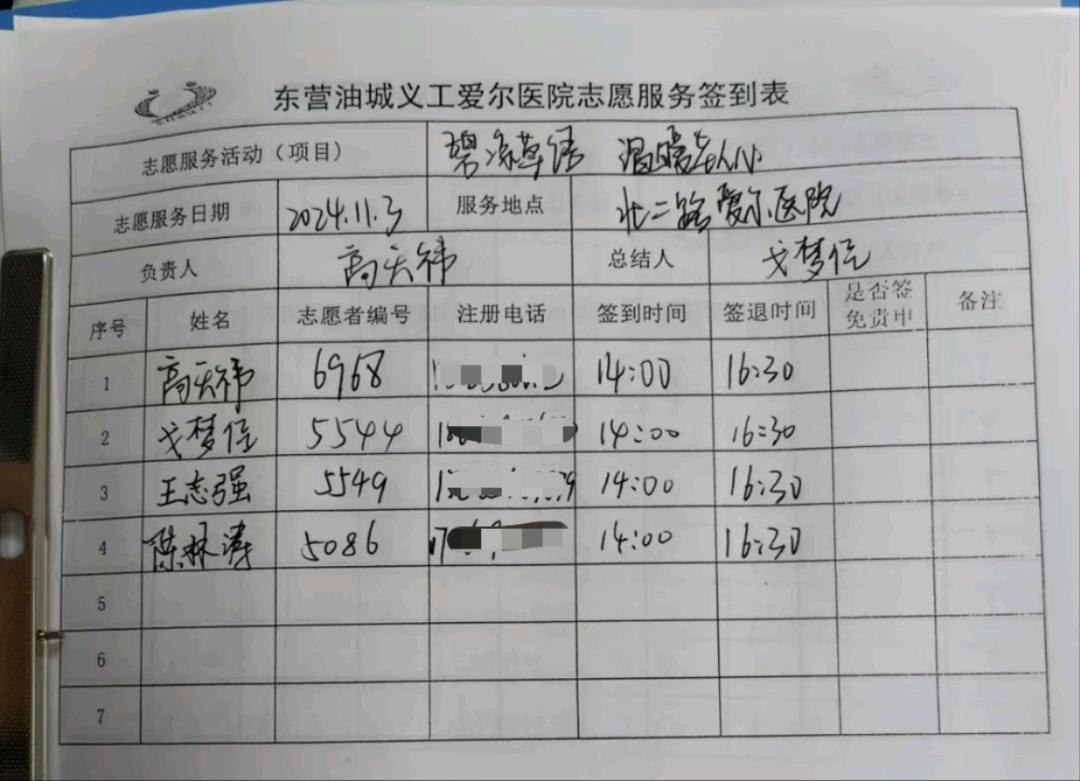 东营油城义工爱尔医院志愿服务签到表
志愿服务活动（项目） 温暖人心
志愿服务日期 2024.11.3 服务地点 北二路爱尔医院
负责人 高天祎 总结人 戈梦
序号 姓名 志愿者编号 注册电话 签到时间 签退时间 是否签免责申 备注
1 高天祎 6968 14:00 16:30
2 戈梦 5544 14:00 16:30
3 王志强 5549 14:00 16:30
4 陈林涛 5086 14:00 16:30
5
6
7